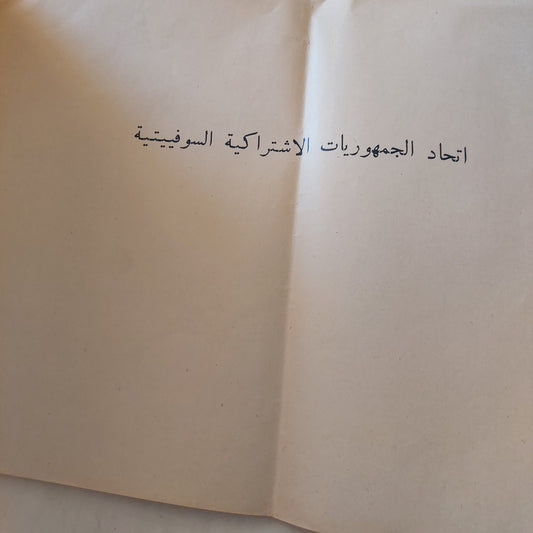 اتحاد الجمهوريات الاشتراكية السوفييتية